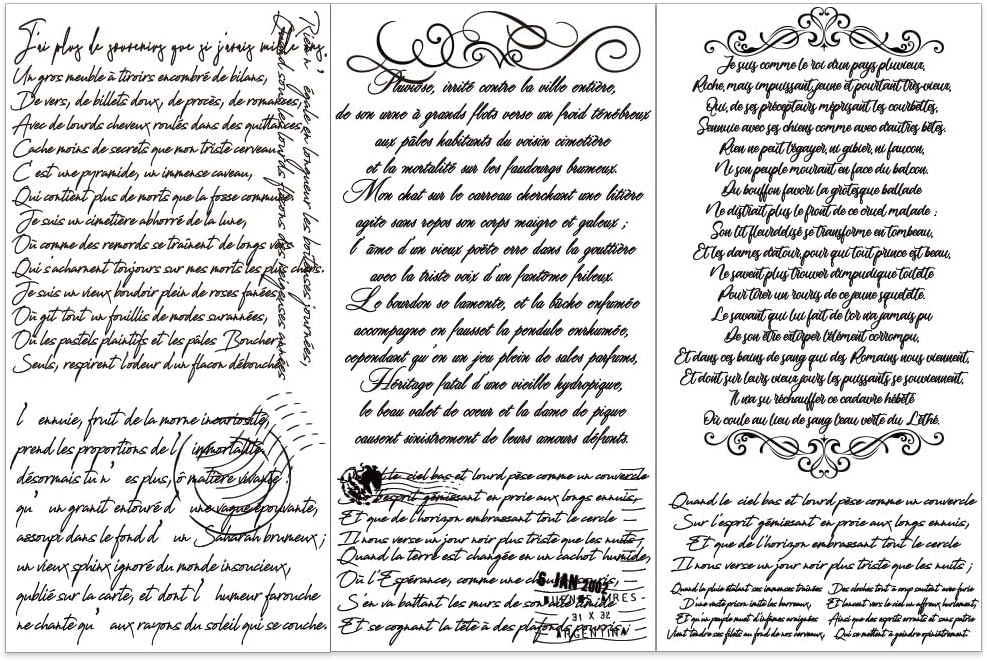 J'ai plus de souvenirs que si j'avais mille ans.
Un gros meuble à tiroirs encombré de bilans,
De vers, de billets doux, de procès, de romances,
Avec de lourds cheveux roulés dans des quittances,
Cache moins de secrets que mon triste cerveau.
C est une pyramide, un immense caveau,
Qui contient plus de morts que la fosse commune.
Je suis un cimetière abhorré de la lune,
Où comme des remords se traînent de longs vers
Qui s'acharnent toujours sur mes morts les plus chers.
Je suis un vieux boudoir plein de roses fanées,
Où gît tout un fouillis de modes surannées,
Où les pastels plaintifs et les pâles Boucher,
Seuls, respirent l'odeur d'un flacon débouché.
Rien n' égale en longueur les boiteuses journées,
Quand sous les lourds flocons des neigeuses années
l ennuie, fruit de la morne incuriosité,
prend les proportions de l immortalité.
désormais tu n es plus, ô matière vivante !
qu un granit entouré d une vague épouvante,
assoupi dans le fond d un Saharah brumeux ;
un vieux sphinx ignoré du monde insoucieux,
oublié sur la carte, et dont l humeur farouche
ne chante qu aux rayons du soleil qui se couche.
Pluviôse, irrité contre la ville entière,
de son urne à grands flots verse un froid ténébreux
aux pâles habitants du voisin cimetière
et la mortalité sur les faubourgs brumeux.
Mon chat sur le carreau cherchant une litière
agite sans repos son corps maigre et galeux ;
l âme d'un vieux poète erre dans la gouttière
avec la triste voix d'un fantôme frileux.
Le bourdon se lamente, et la bûche enfumée
accompagne en fausset la pendule enrhumée,
cependant qu'en un jeu plein de sales parfums,
Héritage fatal d'une vieille hydropique,
le beau valet de coeur et la dame de pique
causent sinistrement de leurs amours défunts.
le ciel bas et lourd pèse comme un couvercle
l'esprit gémissant en proie aux longs ennuis,
Et que de l'horizon embrassant tout le cercle
Il nous verse un jour noir plus triste que les nuits ;
Quand la terre est changée en un cachot humide,
Où l'Espérance, comme une chauve-souris,
S'en va battant les murs de son aile timide
Et se cognant la tête à des plafonds pourris ;
6 JAN 2002
BUENOS AIRES
31 X 32
ARGENTINA
Je suis comme le roi d'un pays pluvieux,
Riche, mais impuissant, jeune et pourtant très-vieux,
Qui, de ses précepteurs méprisant les courbettes,
S'ennuie avec ses chiens comme avec d'autres bêtes.
Rien ne peut l'égayer, ni gibier, ni faucon,
Ni son peuple mourant en face du balcon.
Du bouffon favori la grotesque ballade
Ne distrait plus le front de ce cruel malade ;
Son lit fleurdelisé se transforme en tombeau,
Et les dames d'atour, pour qui tout prince est beau,
Ne savent plus trouver d'impudique toilette
Pour tirer un souris de ce jeune squelette.
Le savant qui lui fait de l'or n'a jamais pu
De son être extirper l'élément corrompu,
Et dans ces bains de sang qui des Romains nous viennent,
Et dont sur leurs vieux jours les puissants se souviennent,
Il n'a su réchauffer ce cadavre hébété
Où coule au lieu de sang l'eau verte du Léthé.
Quand le ciel bas et lourd pèse comme un couvercle
Sur l'esprit gémissant en proie aux longs ennuis,
Et que de l'horizon embrassant tout le cercle
Il nous verse un jour noir plus triste que les nuits ;
Quand la pluie étalant ses immenses traînées
D'une vaste prison imite les barreaux,
Et qu'un peuple muet d'infâmes araignées
Vient tendre ses filets au fond de nos cerveaux,
Des cloches tout à coup sautent avec furie
Et lancent vers le ciel un affreux hurlement,
Ainsi que des esprits errants et sans patrie
Qui se mettent à geindre opiniâtrement.